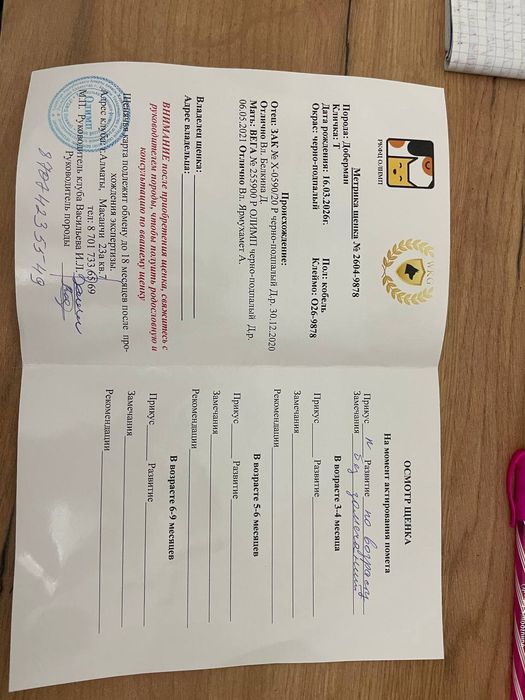 РКФЦ ОЛИМП
УКС
Метрика щенка № 2604-9878
Порода: Доберман
Кличка: Т
Пол: кобель
Дата рождения: 16.03.2026г.
Клеймо: О26-9878
Окрас: черно-подпалый
Происхождение:
Отец: ЗАК № Х-0590/20 Р черно-подпалый Д.р. 30.12.2020
Отлично Вл. Белкина Д.
Мать: ВЕГА № 255900 Р ОЛИМП черно-подпалый Д.р.
06.05.2021 Отлично Вл. Ярмухамет А.
Владелец щенка:
Адрес владельца:
ВНИМАНИЕ после приобретения щенка, свяжитесь с
руководителем породы, чтобы получить родословную и
консультацию по вашему щенку
Щенячья карта подлежит обмену до 18 месяцев после про-
хождения экспертизы.
Адрес клуба: г.Алматы, Масанчи 23а кв.
тел: 8 701 733 65 69
М.П. Руководитель клуба Васильева И.Л.
Руководитель породы
87074235549
ОСМОТР ЩЕНКА
На момент актирования помета
Прикус п Развитие по возрасту
Замечания Без замечаний
В возрасте 3-4 месяца
Прикус Развитие
Замечания
Рекомендации
В возрасте 5-6 месяцев
Прикус Развитие
Замечания
Рекомендации
В возрасте 6-9 месяцев
Прикус Развитие
Замечания
Рекомендации